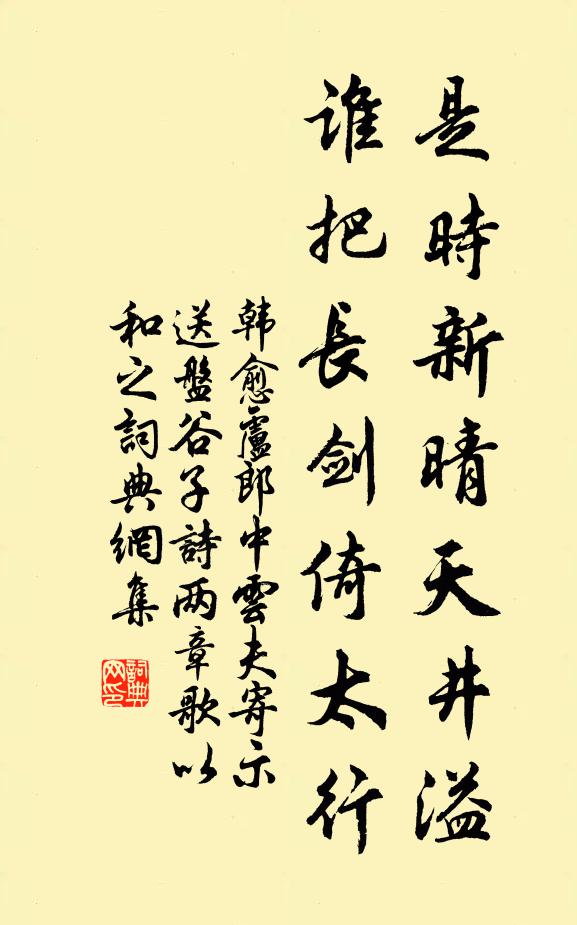 是時新晴天井溢
谁把長剑倚太行
韩愈盧郎中雲夫寄示
送盤谷子詩两章歌以
和之詞典網集
詞典
网印